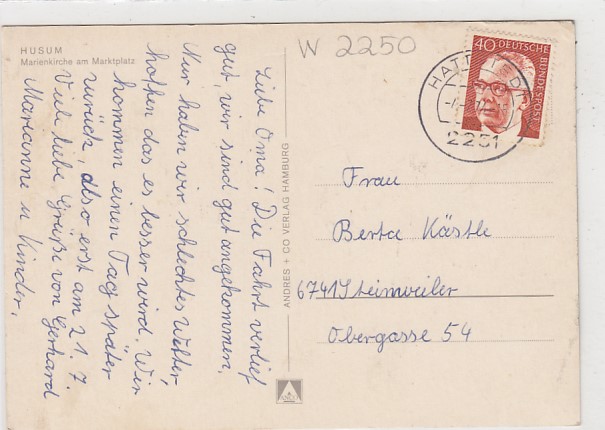 HUSUM
Marienkirche am Marktplatz
W 2250
40 DEUTSCHE BUNDESPOST
2251
Liebe Oma! Die Fahrt verlief
gut, wir sind gut angekommen.
Nur haben wir schlechtes Wetter,
hoffen das es besser wird. Wir
kommen einen Tag später
zurück, also erst am 21. 7.
Viele liebe Grüße von Gerhard
Marianne u Kinder.
ANDRES + CO VERLAG HAMBURG
Frau
Berta Kästle
6741 Steinweiler
Obergasse 54